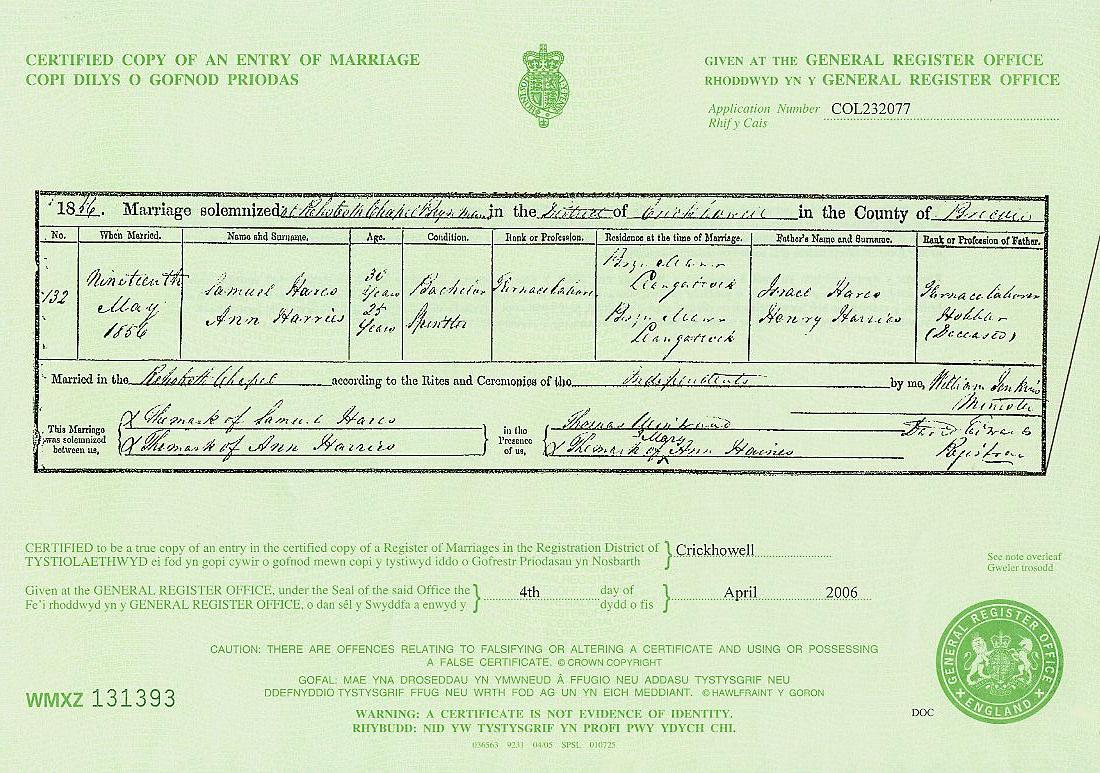 CERTIFIED COPY OF AN ENTRY OF MARRIAGE
COPI DILYS O GOFNOD PRIODAS
GIVEN AT THE GENERAL REGISTER OFFICE
RHODDWYD YN Y GENERAL REGISTER OFFICE
Application Number COL232077
Rhif y Cais
1856. Marriage solemnized at Rehoboth Chapel in the District of Crickhowell in the County of Brecon
No. When Married. Name and Surname. Age. Condition. Rank or Profession. Residence at the time of Marriage. Father's Name and Surname. Rank or Profession of Father.
132
Nineteenth
May
1856
Samuel Hares
Ann Harries
30
Years
25
Years
Bachelor
Spinster
Furnace labourer
Llangattock
Llangattock
Israel Hares
Henry Harries
Furnace labourer
(Deceased)
Married in the Rehoboth Chapel according to the Rites and Ceremonies of the Independents by me, William Jenkins
Minister
This Marriage
was solemnized
between us,
X The mark of Samuel Hares
X The mark of Ann Harries
in the
Presence
of us,
Thomas
X The mark of Mary Ann Haines
Registrar
CERTIFIED to be a true copy of an entry in the certified copy of a Register of Marriages in the Registration District of Crickhowell
TYSTIOLAETHWYD ei fod yn gopi cywir o gofnod mewn copi y tystiwyd iddo o Gofrestr Priodasau yn Nosbarth
See note overleaf
Gweler trosodd
Given at the GENERAL REGISTER OFFICE, under the Seal of the said Office the 4th day of April 2006
Fe'i rhoddwyd yn y GENERAL REGISTER OFFICE, o dan sêl y Swyddfa a enwyd y dydd o fis
CAUTION: THERE ARE OFFENCES RELATING TO FALSIFYING OR ALTERING A CERTIFICATE AND USING OR POSSESSING
A FALSE CERTIFICATE. © CROWN COPYRIGHT
GOFAL: MAE YNA DROSEDDAU YN YMWNEUD Â FFUGIO NEU ADDASU TYSTYSGRIF NEU
DDEFNYDDIO TYSTYSGRIF FFUG NEU WRTH FOD AG UN YN EICH MEDDIANT. © HAWLFRAINT Y GORON
WARNING: A CERTIFICATE IS NOT EVIDENCE OF IDENTITY.
RHYBUDD: NID YW TYSTYSGRIF YN PROFI PWY YDYCH CHI.
036563 9231 04/05 SPSL 010725
WMXZ 131393
DOC
GENERAL REGISTER OFFICE
ENGLAND